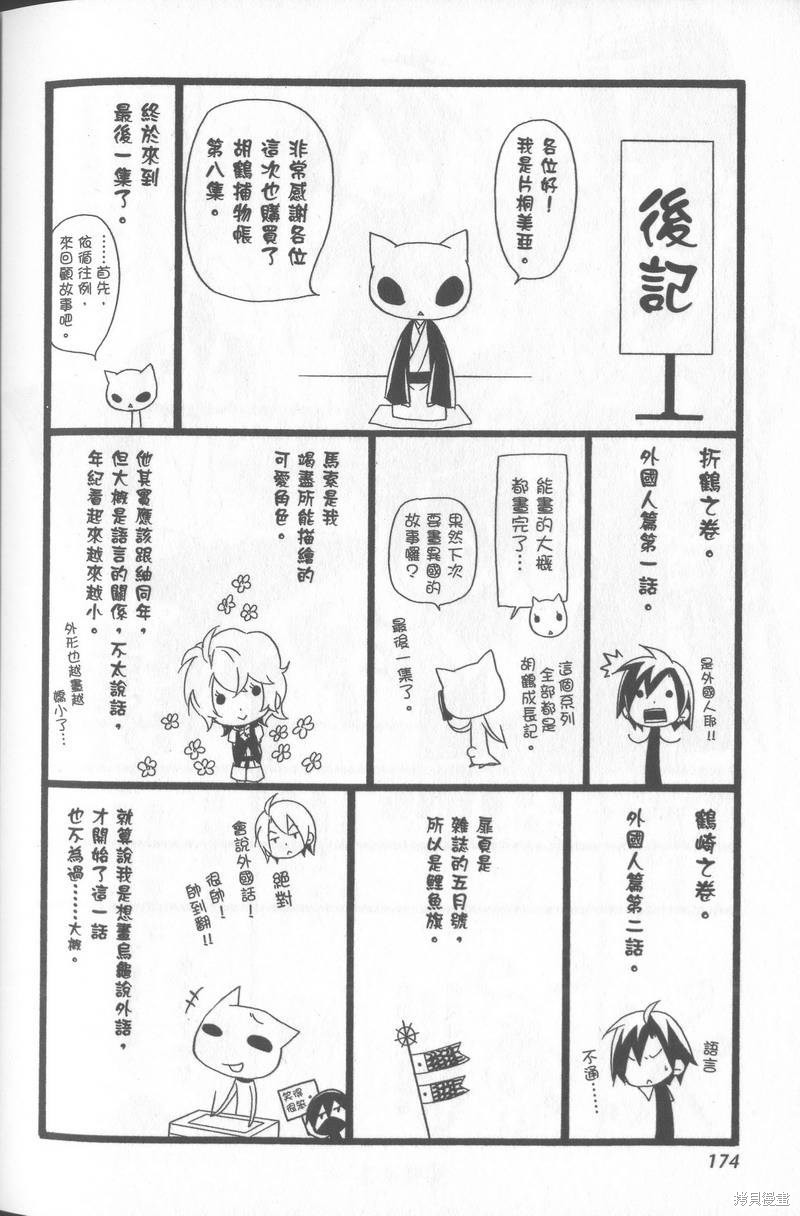 後記
各位好！
我是片桐美亞。
非常感謝各位
這次也購買了
胡鶴捕物帳
第八集。
終於來到
最後一集了。
……首先，
依循往例，
來回顧故事吧。
折鶴之卷。
外國人篇第一話。
是外國人耶!!
能畫的大概
都畫完了…
這個系列
全部都是
胡鶴成長記。
果然下次
要畫異國的
故事囉？
最後一集了。
馬索是我
竭盡所能描繪的
可愛角色。
他其實應該跟紬同年，
但大概是語言的關係，不太說話，
年紀看起來越來越小。
外形也越畫越
嬌小了…
鶴崎之卷。
外國人篇第二話。
語言
不通……
扉頁是
雜誌的五月號，
所以是鯉魚旗。
絕對
會說外國話！
很帥！
帥到翻!!
就算說我是想畫烏龜說外話，
才開始了這一話
也不為過……大概。
笑得
很笨
174
拷貝漫畫